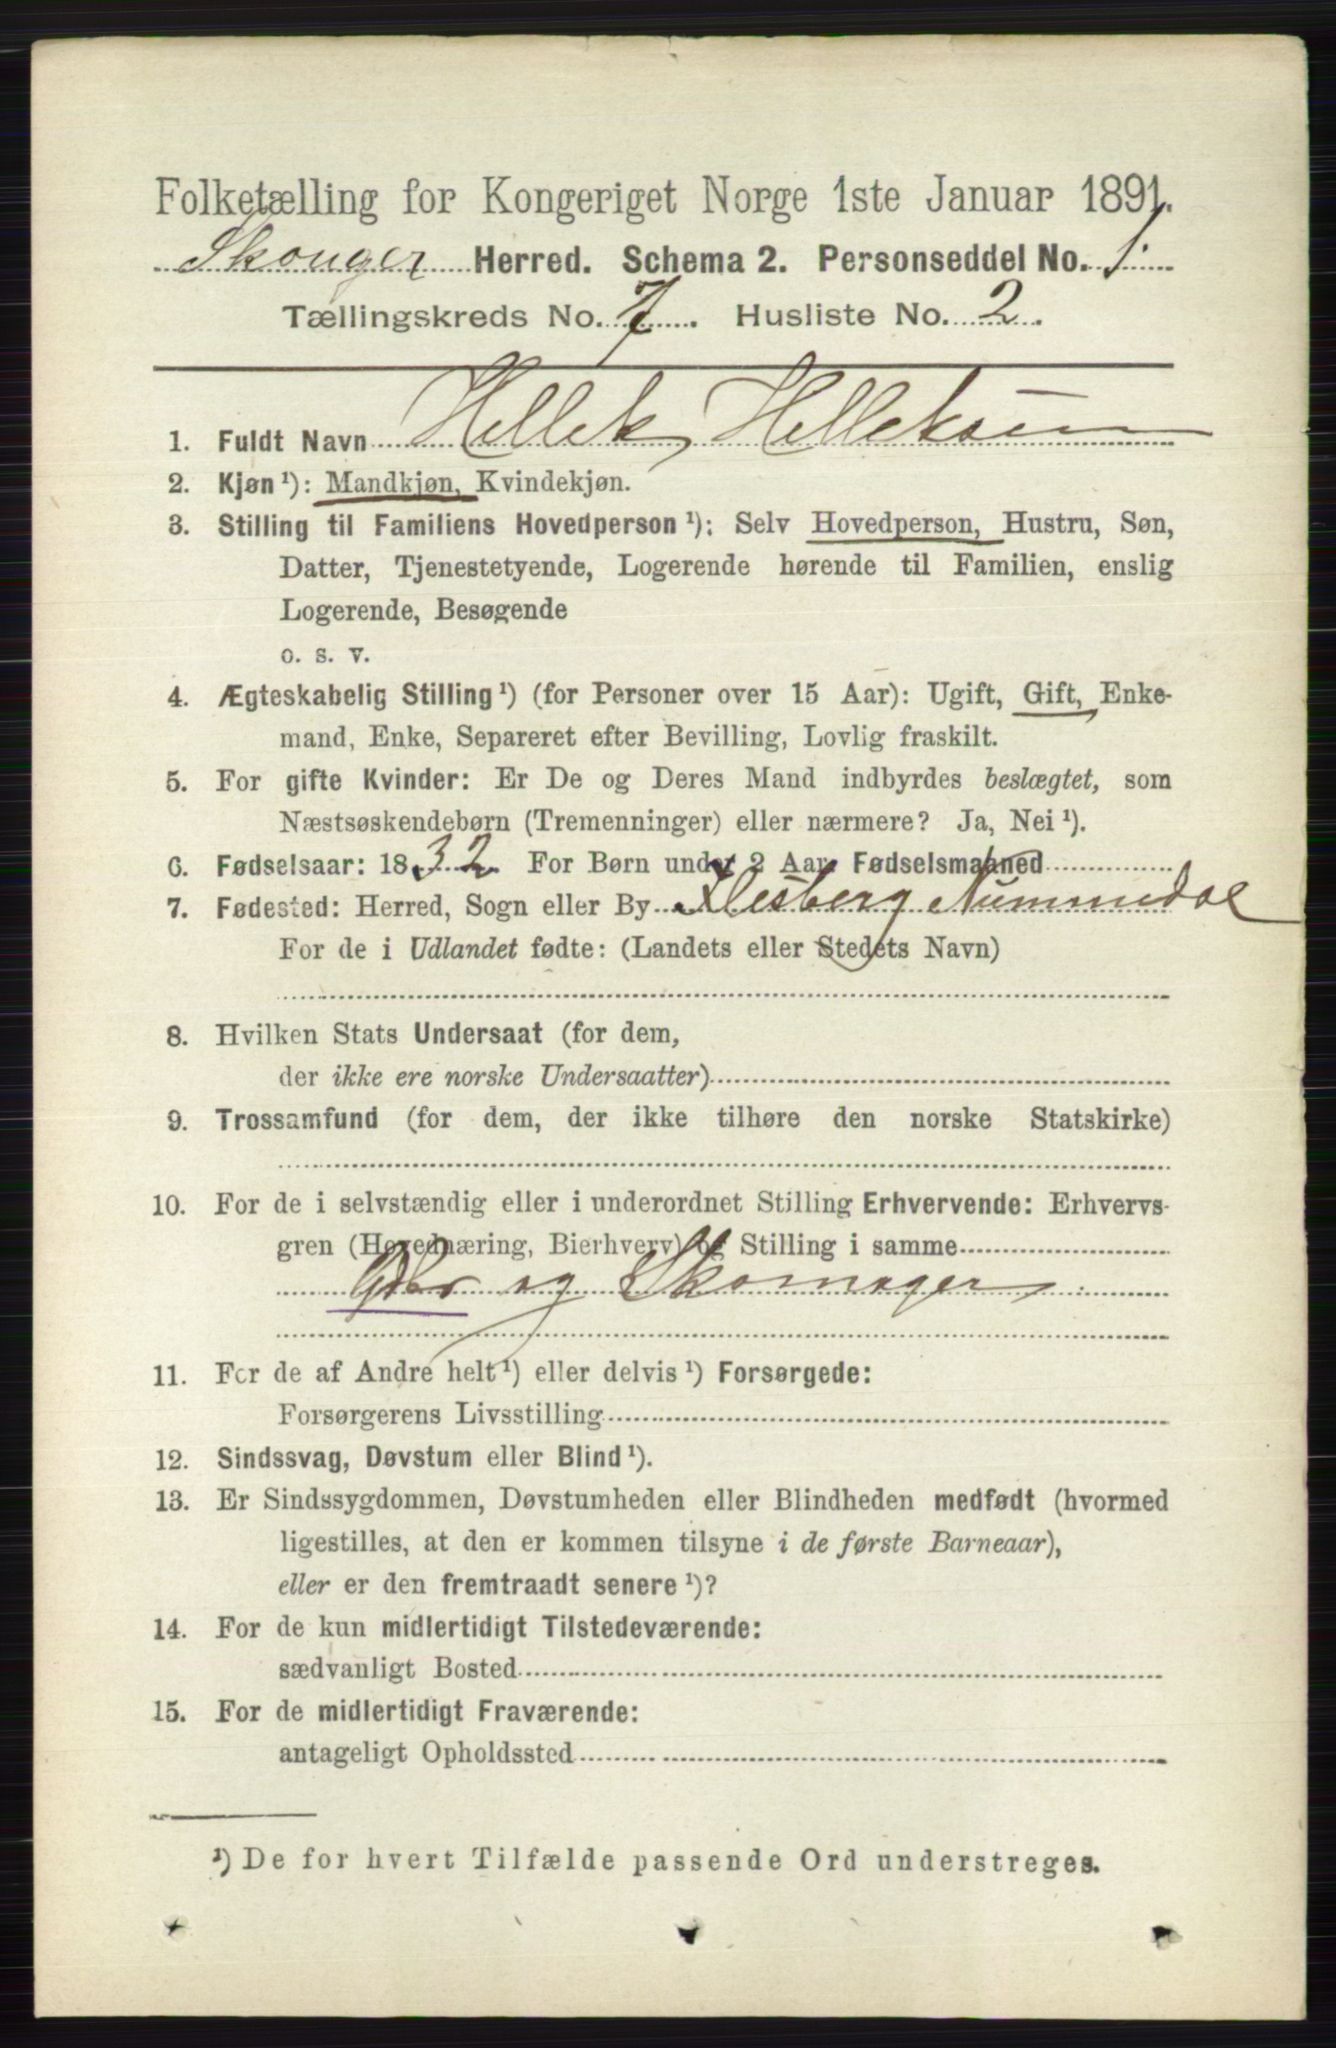 Folketælling for Kongeriget Norge 1ste Januar 1891.
Skouger Herred. Schema 2. Personseddel No. 1.
Tællingskreds No. 7. Husliste No. 2.
1. Fuldt Navn Hellek Helleksen
2. Kjøn ¹): Mandkjøn, Kvindekjøn.
3. Stilling til Familiens Hovedperson ¹): Selv Hovedperson, Hustru, Søn,
Datter, Tjenestetyende, Logerende hørende til Familien, enslig
Logerende, Besøgende
o. s. v.
4. Ægteskabelig Stilling ¹) (for Personer over 15 Aar): Ugift, Gift, Enke-
mand, Enke, Separeret efter Bevilling, Lovlig fraskilt.
5. For gifte Kvinder: Er De og Deres Mand indbyrdes beslægtet, som
Næstsøskendebørn (Tremenninger) eller nærmere? Ja, Nei ¹).
6. Fødselsaar: 1832. For Børn under 2 Aar Fødselsmaaned
7. Fødested: Herred, Sogn eller By Flesberg Nummedal
For de i Udlandet fødte: (Landets eller Stedets Navn)
8. Hvilken Stats Undersaat (for dem,
der ikke ere norske Undersaatter)
9. Trossamfund (for dem, der ikke tilhøre den norske Statskirke)
10. For de i selvstændig eller i underordnet Stilling Erhvervende: Erhvervs-
gren (Hovednæring, Bierhverv) og Stilling i samme
og Skomager
11. For de af Andre helt ¹) eller delvis ¹) Forsørgede:
Forsørgerens Livsstilling
12. Sindssvag, Døvstum eller Blind ¹).
13. Er Sindssygdommen, Døvstumheden eller Blindheden medfødt (hvormed
ligestilles, at den er kommen tilsyne i de første Barneaar),
eller er den fremtraadt senere ¹)?
14. For de kun midlertidigt Tilstedeværende:
sædvanligt Bosted
15. For de midlertidigt Fraværende:
antageligt Opholdssted
¹) De for hvert Tilfælde passende Ord understreges.